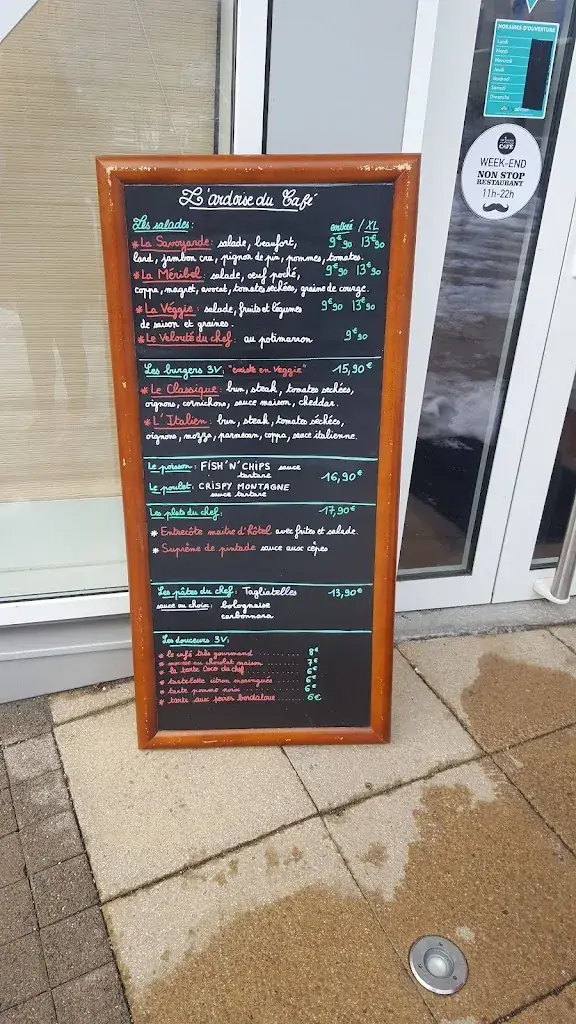 HORAIRES D'OUVERTURE
Lundi
Mardi
Mercredi
Jeudi
Vendredi
Samedi
Dimanche
CAFÉ
WEEK-END
NON STOP
RESTAURANT
11h-22h
L'ardoise du Café
Les salades: entrée / XL
* La Savoyarde: salade, beaufort, 9€90 13€90
lard, jambon cru, pignon de pin, pommes, tomates.
* La Méribel: salade, œuf poché, 9€90 13€90
coppa, magret, avocat, tomates séchées, graine de courge.
* La Véggie: salade, fruits et légumes 9€90 13€90
de saison et graines.
* Le Velouté du chef: au potimarron 9€90
Les burgers 3V: "existe en Veggie" 15,90€
* Le Classique: bun, steak, tomates séchées,
oignons, cornichons, sauce maison, cheddar.
* L'Italien: bun, steak, tomates séchées,
oignons, mozza, parmesan, coppa, sauce italienne.
Le poisson: FISH'N'CHIPS sauce
tartare 16,90€
Le poulet: CRISPY MONTAGNE
sauce tartare
Les plats du chef: 17,90€
* Entrecôte maitre d'hôtel avec frites et salade.
* Suprême de pintade sauce aux cèpes
Les pâtes du chef: Tagliatelles 13,90€
sauce au choix: bolognaise
carbonnara
Les douceurs 3V:
* le café très gourmand ........ 8€
* mousse au chocolat maison ....... 7€
* la tarte Coco du chef ........ 6€
* tartelette citron meringuée ...... 6€
* tarte pomme noix ........ 6€
* tarte aux poires bordaloue ....... 6€